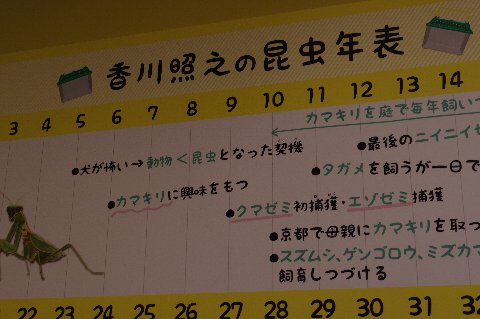 香川照之の昆虫年表
3 4 5 6 7 8 9 10 11 12 13 14
カマキリを庭で毎年飼いつ
●犬が怖い→動物<昆虫となった契機
●最後のニイニイゼ
●カマキリに興味をもつ
●タガメを飼うが一日で
●クマゼミ初捕獲・エゾゼミ捕獲
●京都で母親にカマキリを取っ
●スズムシ、ゲンゴロウ、ミズカマ
飼育しつづける
22 23 24 25 26 27 28 29 30 31 32